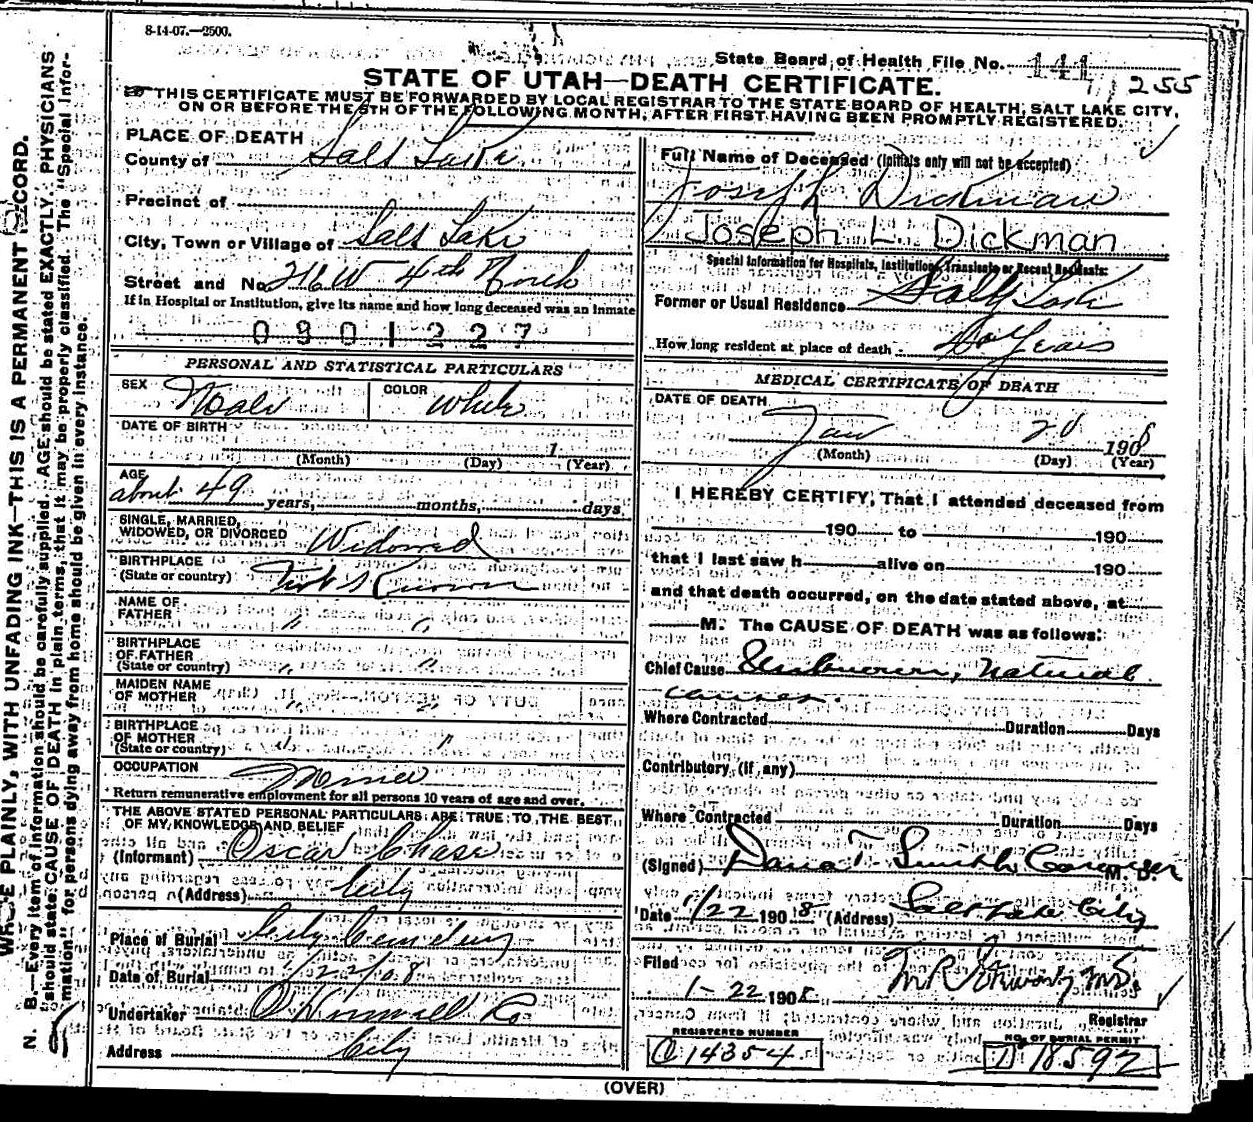 8-14-07.—2500.
State Board of Health File No. 141, 255
STATE OF UTAH—DEATH CERTIFICATE.
THIS CERTIFICATE MUST BE FORWARDED BY LOCAL REGISTRAR TO THE STATE BOARD OF HEALTH, SALT LAKE CITY,
ON OR BEFORE THE 5TH OF THE FOLLOWING MONTH, AFTER FIRST HAVING BEEN PROMPTLY REGISTERED.
PLACE OF DEATH
County of Salt Lake
Precinct of
City, Town or Village of Salt Lake
Street and No. 216 W 4th North
If in Hospital or Institution, give its name and how long deceased was an inmate
0901227
PERSONAL AND STATISTICAL PARTICULARS
SEX Male COLOR White
DATE OF BIRTH
1
(Month) (Day) (Year)
AGE
about 49 years, months, days
SINGLE, MARRIED,
WIDOWED, OR DIVORCED Widowed
BIRTHPLACE
(State or country) Not Known
NAME OF
FATHER " "
BIRTHPLACE
OF FATHER
(State or country) " "
MAIDEN NAME
OF MOTHER " "
BIRTHPLACE
OF MOTHER
(State or country) " "
OCCUPATION Miner
Return remunerative employment for all persons 10 years of age and over.
THE ABOVE STATED PERSONAL PARTICULARS ARE TRUE TO THE BEST
OF MY KNOWLEDGE AND BELIEF
(Informant) Oscar Chase
(Address) City
Place of Burial City Cemetery
Date of Burial 1/22/08
Undertaker Co
Address City
Full Name of Deceased (Initials only will not be accepted)
Joseph Dickman
Joseph L. Dickman
Special Information for Hospitals, Institutions, Transients or Recent Residents:
Former or Usual Residence Salt Lake
How long resident at place of death Years
MEDICAL CERTIFICATE OF DEATH
DATE OF DEATH
Jan 20 1908
(Month) (Day) (Year)
I HEREBY CERTIFY, That I attended deceased from
190 to 190
that I last saw h alive on 190
and that death occurred, on the date stated above, at
M. The CAUSE OF DEATH was as follows:
Chief Cause Unknown, Natural
causes.
Where Contracted Duration Days
Contributory (if any)
Where Contracted Duration Days
(Signed) Dana T. Smith Coroner M. D.
Date 1/22 1908 (Address) Salt Lake City
Filed
1-22 1908
Registrar
REGISTERED NUMBER
O 14354
NO. OF BURIAL PERMIT
D 18592
(OVER)
N. B.—Every item of information should be carefully supplied. AGE should be stated EXACTLY. PHYSICIANS
should state CAUSE OF DEATH in plain terms, that it may be properly classified. The "Special Infor-
mation" for persons dying away from home should be given in every instance.
PLAINLY, WITH UNFADING INK—THIS IS A PERMANENT RECORD.